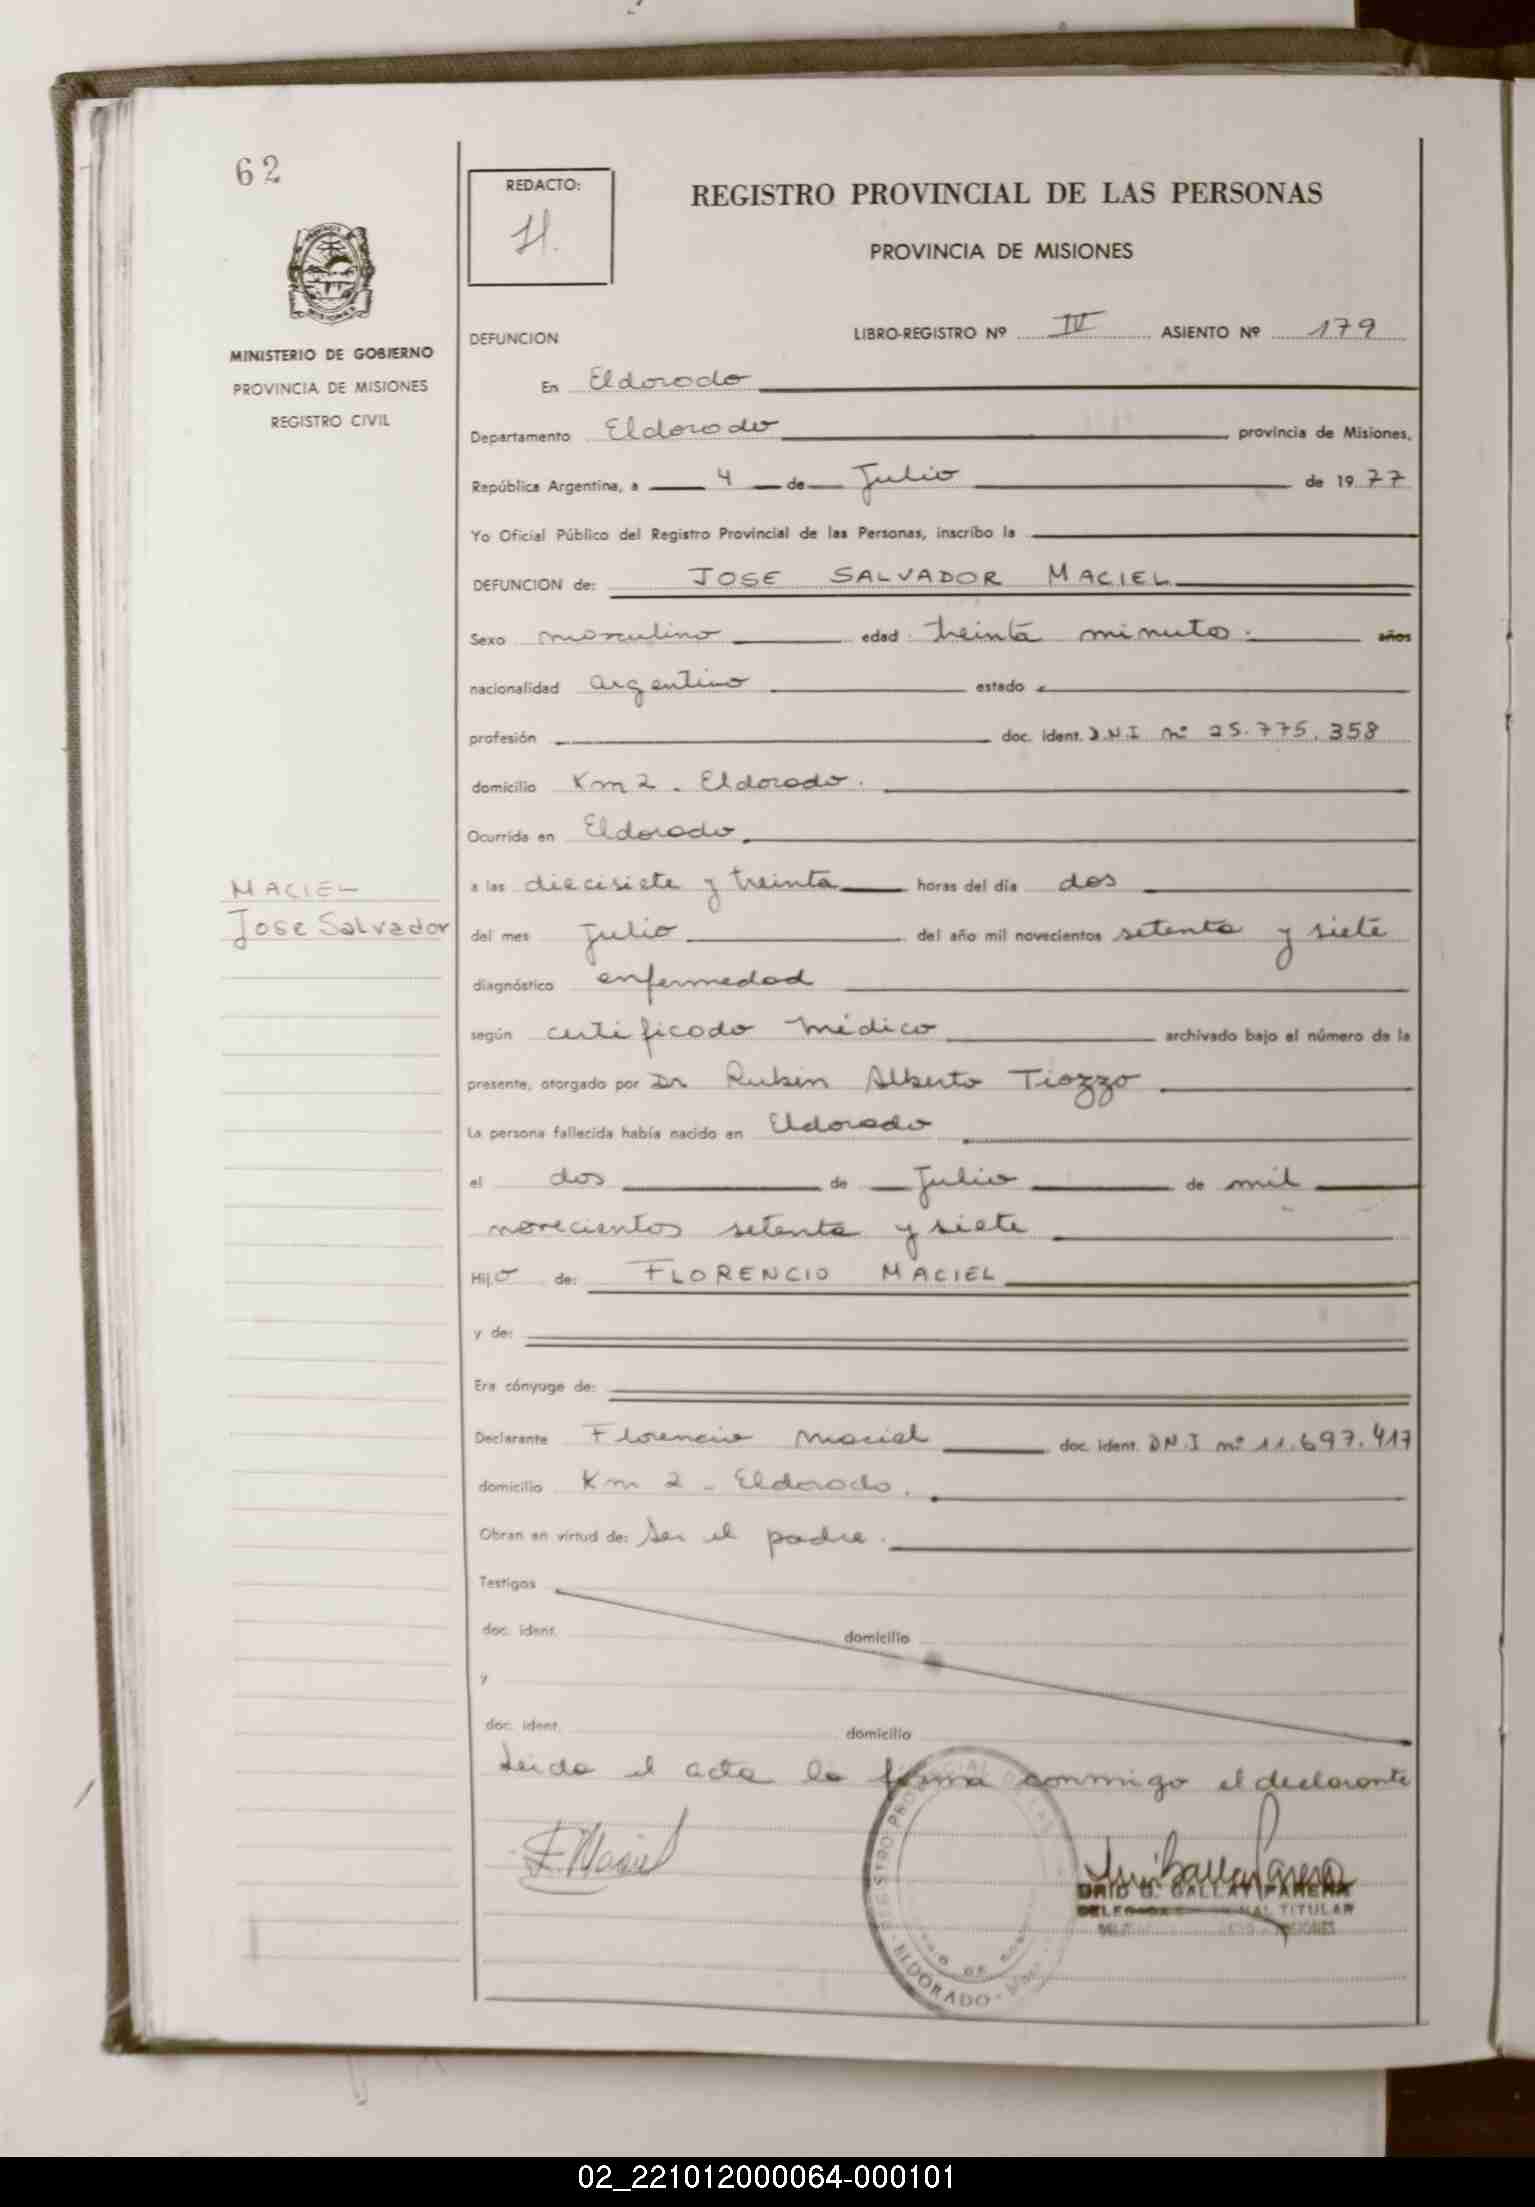 62
REDACTO:
H.
REGISTRO PROVINCIAL DE LAS PERSONAS
PROVINCIA DE MISIONES
MINISTERIO DE GOBIERNO
PROVINCIA DE MISIONES
REGISTRO CIVIL
DEFUNCION
LIBRO-REGISTRO Nº IV ASIENTO Nº 179
En Eldorado
Departamento Eldorado provincia de Misiones,
República Argentina, a 4 de Julio de 1977
Yo Oficial Público del Registro Provincial de las Personas, inscribo la
DEFUNCION de: JOSE SALVADOR MACIEL
Sexo masculino edad treinta minutos. años
nacionalidad argentino estado
profesión doc. ident. D.N.I nº 25.775.358
domicilio Km 2 - Eldorado.
Ocurrida en Eldorado
MACIEL
Jose Salvador
a las diecisiete y treinta horas del día dos
del mes Julio del año mil novecientos setenta y siete
diagnóstico enfermedad
según certificado médico archivado bajo el número de la
presente, otorgado por Dr Rubén Alberto Tiozzo
La persona fallecida había nacido en Eldorado
el dos de Julio de mil
novecientos setenta y siete
Hijo de: FLORENCIO MACIEL
y de:
Era cónyuge de:
Declarante Florencio Maciel doc. ident. DN.I nº 11.697.417
domicilio Km 2 - Eldorado.
Obran en virtud de: ser el padre.
Testigos
doc. ident. domicilio
y
doc. ident. domicilio
Leida el acta la firma conmigo el declarante
F. Maciel
REGISTRO PROVINCIAL DE LAS
ELDORADO
GALLAY PARERA
TITULAR
02_221012000064-000101